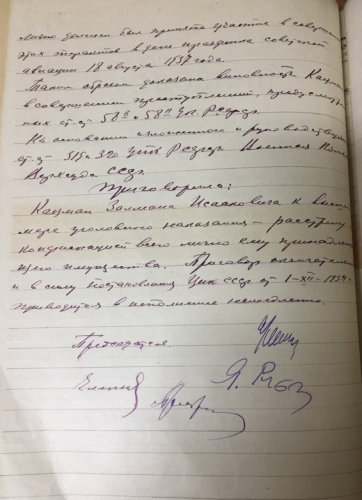 лично должен был принять участие в совершении
этих терактов в день праздника советской
авиации 18 августа 1937 года.
Таким образом доказана виновность Кацман
в совершении преступлений, предусмотрен
ных ст.ст. 58⁸ и 58¹¹ УК РСФСР.
На основании изложенного и руководствуясь
ст.ст. 319 и 320 УПК РСФСР Военная Колл
Верхсуда СССР
Приговорила:
Кацман Залмана Исааковича к высшей
мере уголовного наказания – расстрелу
конфискацией всего лично ему принадлежа
щего имущества. Приговор окончательный
и в силу постановления ЦИК СССР от 1–XII–1934г
приводится в исполнение немедленно.
Председатель